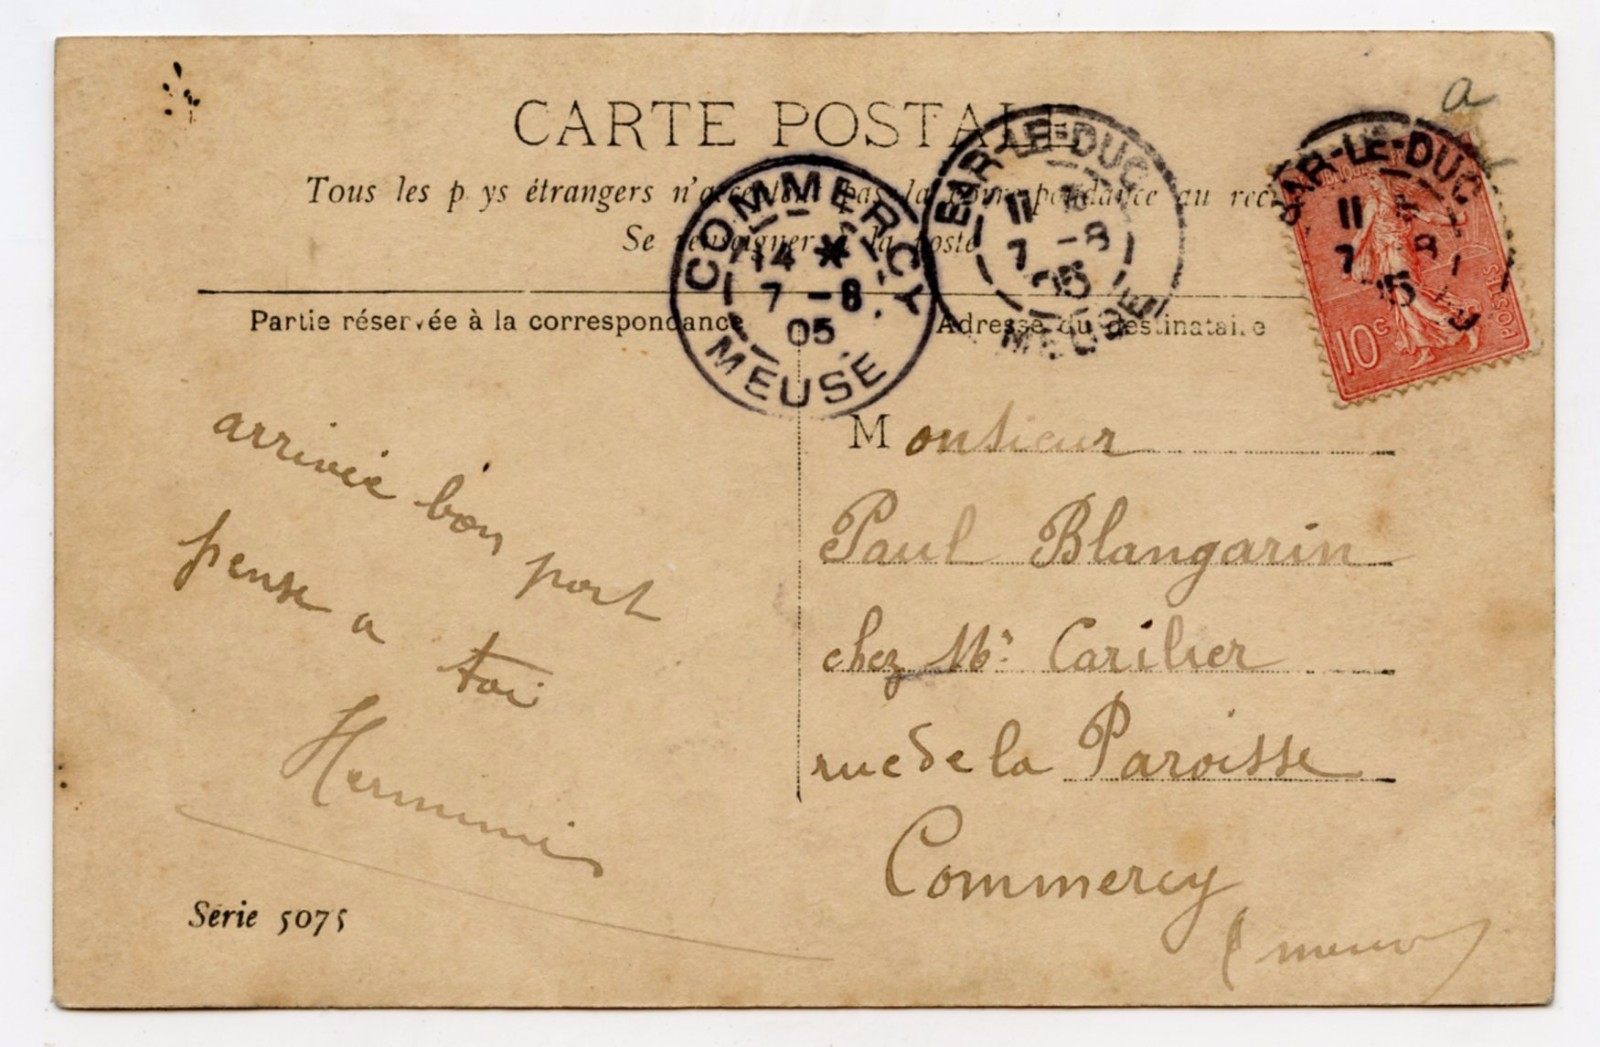 a
CARTE POSTALE
Tous les pays étrangers n'acceptent pas la correspondance au rec
Se renseigner à la poste
COMMERCY
14 *
7 - 8
05
MEUSE
BAR-LE-DUC
11
7 - 8
05
MEUSE
BAR-LE-DUC
11
7 8
05
10c
POSTES
Partie réservée à la correspondance
Adresse du destinataire
arrivée bon port
pense a toi
Hermine
Série 5075
Monsieur
Paul Blangarin
chez Mr Carilier
rue de la Paroisse
Commercy
(meuse)